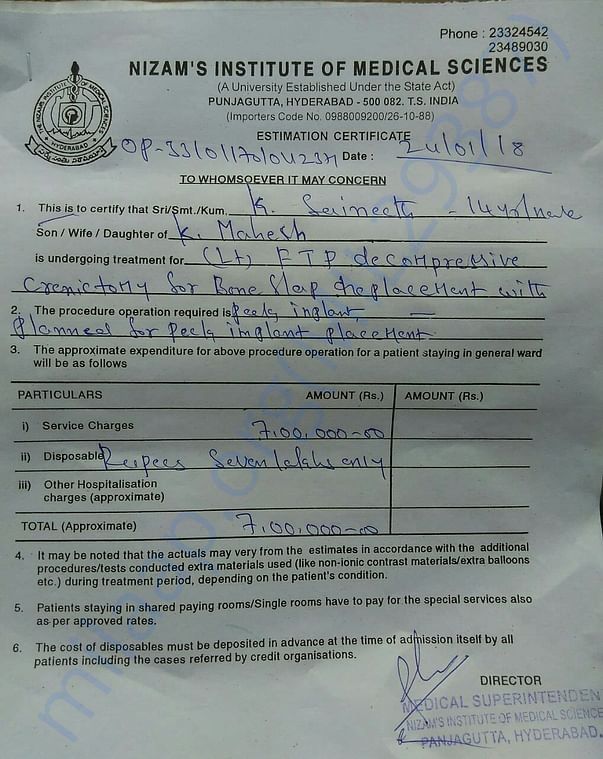 Phone : 23324542
23489030
NIZAM'S INSTITUTE OF MEDICAL SCIENCES
(A University Established Under the State Act)
PUNJAGUTTA, HYDERABAD - 500 082. T.S. INDIA
(Importers Code No. 0988009200/26-10-88)
ESTIMATION CERTIFICATE
Date : 24/01/18
TO WHOMSOEVER IT MAY CONCERN
1. This is to certify that Sri/Smt./Kum. K. Saineeth - 14 yr/male
Son / Wife / Daughter of K. Mahesh
is undergoing treatment for (Lt) FTP decompressive
for Bone flap replacement with
2. The procedure operation required is Peek implant
Planned for Peek implant placement
3. The approximate expenditure for above procedure operation for a patient staying in general ward
will be as follows
PARTICULARS AMOUNT (Rs.) AMOUNT (Rs.)
i) Service Charges 7,00,000-00
ii) Disposable Rupees Seven lakhs only
iii) Other Hospitalisation
charges (approximate)
TOTAL (Approximate) 7,00,000-00
4. It may be noted that the actuals may very from the estimates in accordance with the additional
procedures/tests conducted extra materials used (like non-ionic contrast materials/extra balloons
etc.) during treatment period, depending on the patient's condition.
5. Patients staying in shared paying rooms/Single rooms have to pay for the special services also
as per approved rates.
6. The cost of disposables must be deposited in advance at the time of admission itself by all
patients including the cases referred by credit organisations.
DIRECTOR
MEDICAL SUPERINTENDEN
NIZAM'S INSTITUTE OF MEDICAL SCIENCE
PANJAGUTTA, HYDERABAD.